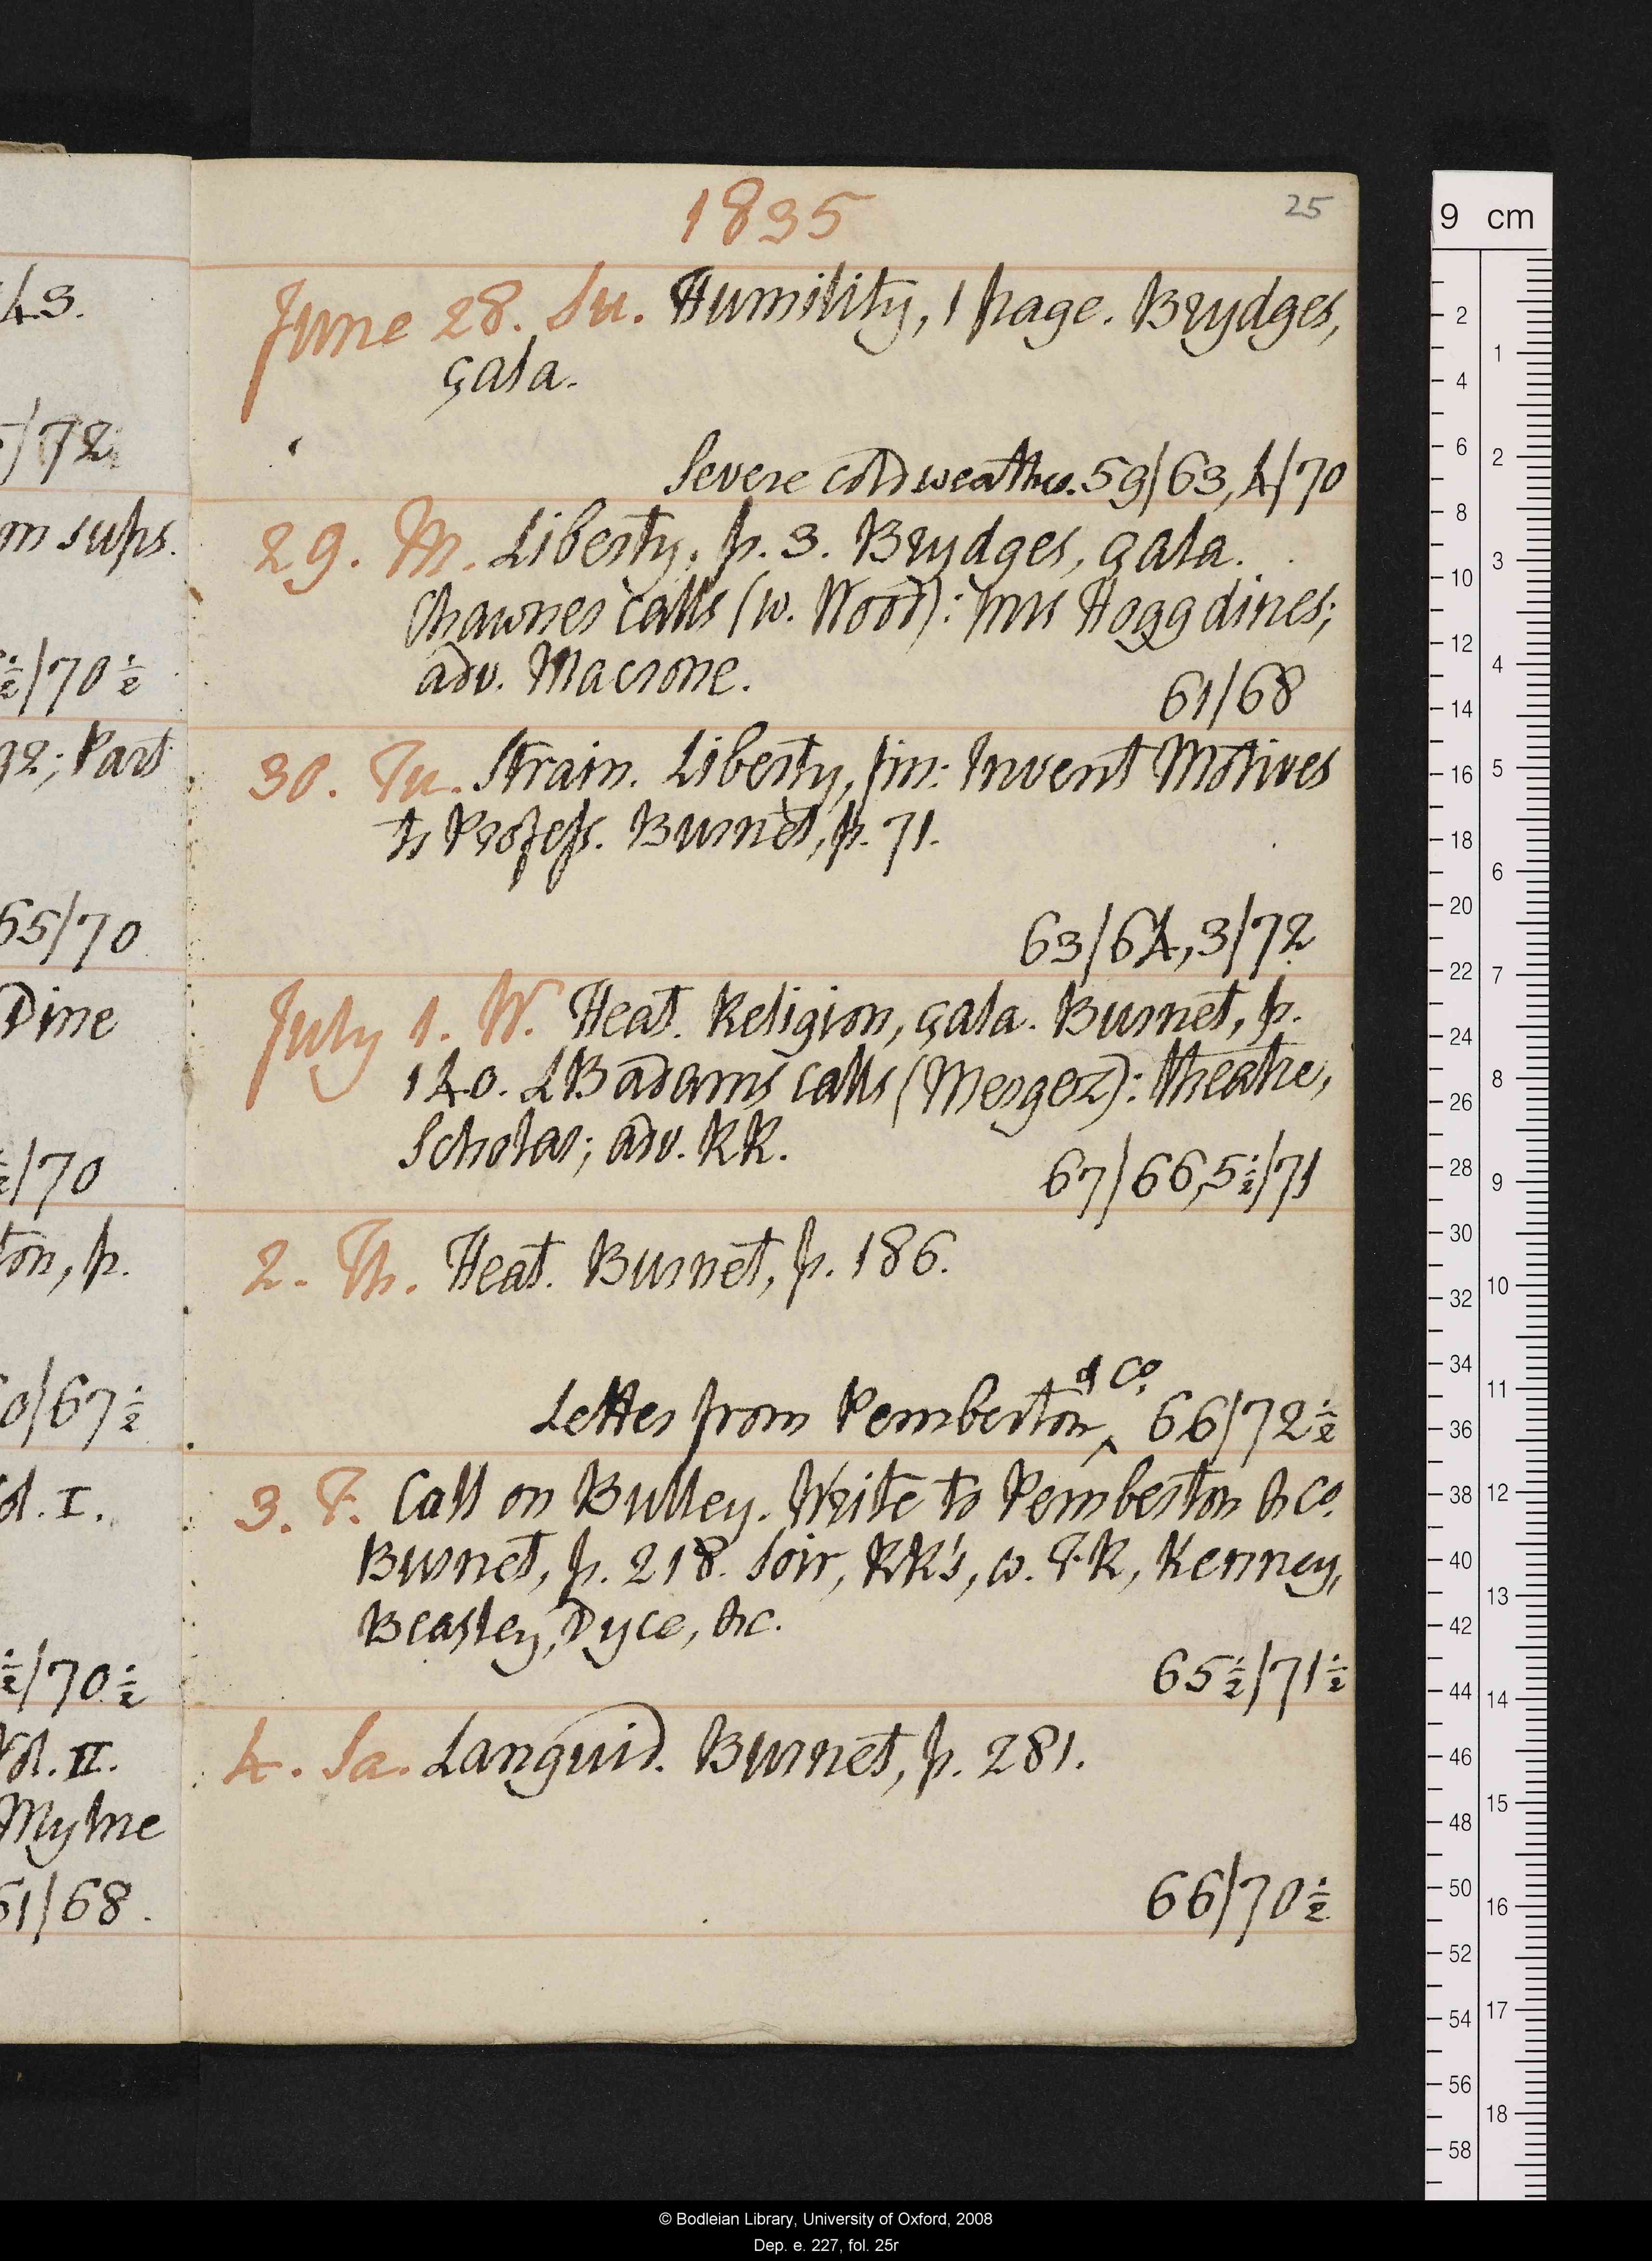 1835
25
June 28. Su. Humility, 1 page. Brydges,
çala.
Severe cold weather. 59/63,4/70
29. M. Liberty, p. 3. Brydges, çala.
Thawnes calls (w. Wood): Mrs Hogg dines;
adv. Macrone.
61/68
30. Tu. Strain. Liberty, fin: Invent Motives
to Profess. Burnet, p. 71.
63/64,3/72
July 1. W. Heat. Religion, çala. Burnet, p.
140. LBadams calls (Merger): theatre,
Scholar; adv. RR.
67/66,5½/71
2. Th. Heat. Burnet, p. 186.
& Co.
Letter from Pemberton^ 66/72½
3. F. Call on Bulley. Write to Pemberton & Co.
Burnet, p. 218. Soir, RR's, w. FR, Kenney,
Beasley, Dyce, &c.
65½/71½
4. Sa. Languid. Burnet, p. 281.
66/70½
43.
/72
on sups.
½/70½
92; Part
65/70
Dine
½/70
ton, p.
0/67½
ol. I.
½/70½
Vol. II.
Mylne
61/68.
9 cm
2
4
6
8
10
12
14
16
18
20
22
24
26
28
30
32
34
36
38
40
42
44
46
48
50
52
54
56
58
1
2
3
4
5
6
7
8
9
10
11
12
13
14
15
16
17
18
© Bodleian Library, University of Oxford, 2008
Dep. e. 227, fol. 25r